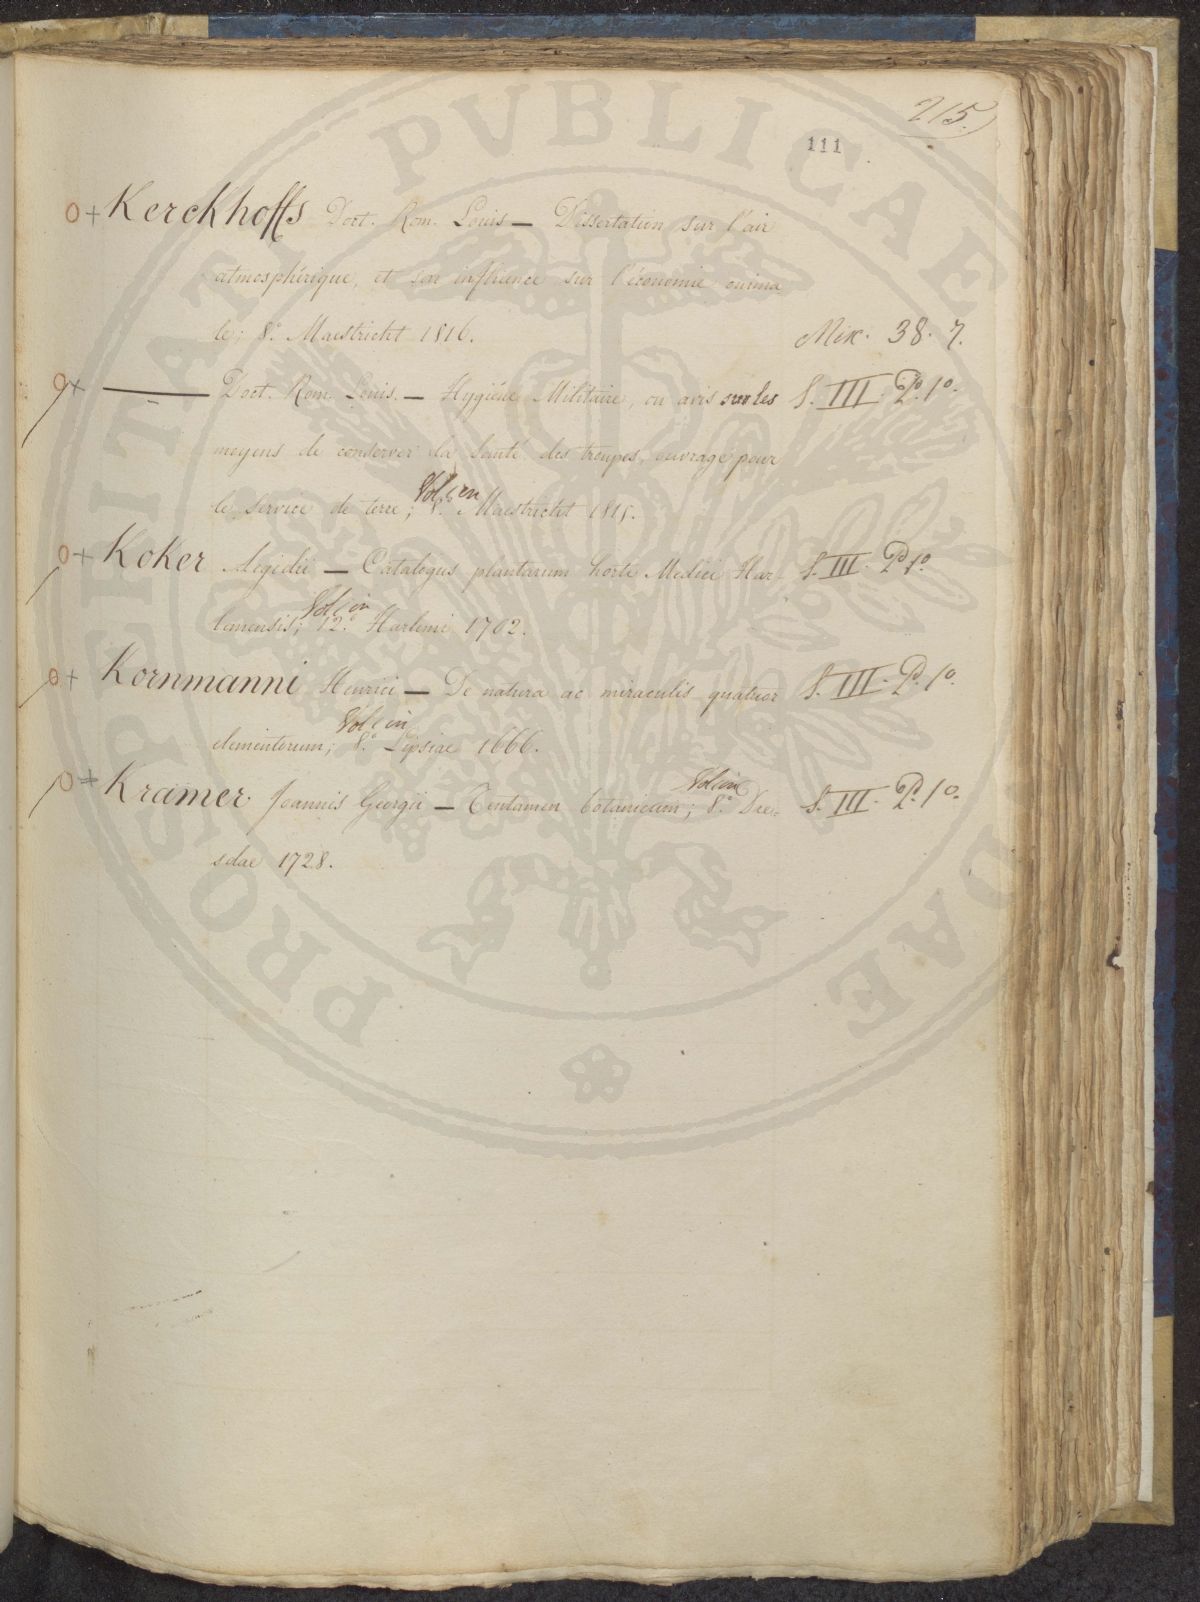 215.
111
O + Kerckhoffs Doct. Rom. Louis — Dissertation sur l'air
atmosphérique, et son influence sur l'économie anima
le; 8.° Maestricht 1816. Mix. 38. 7.
O + —— Doct. Rom. Louis. — Hygiène Militaire, ou avis sur les S. III. P. 1°.
moyens de conserver la Santé des troupes, ouvrage pour
le Service de terre; Vol. 1 en 8.° Maestricht 1815.
O + Koker Aegidii — Catalogus plantarum horti Medici Har- S. III. P. 1°.
lemensis; Vol. 1 in 12.° Harlemi 1702.
O + Kornmanni Henrici — De natura ac miraculis quatuor S. III. P. 1°.
elementorum; Vol. 1 in 8.° Lipsiae 1666.
O + Kramer Joannis Georgii — Tentamen botanicum; Vol. 1 in 8.° Dre= S. III. P. 1°.
sdae 1728.
PROSPERITATI PVBLICAE